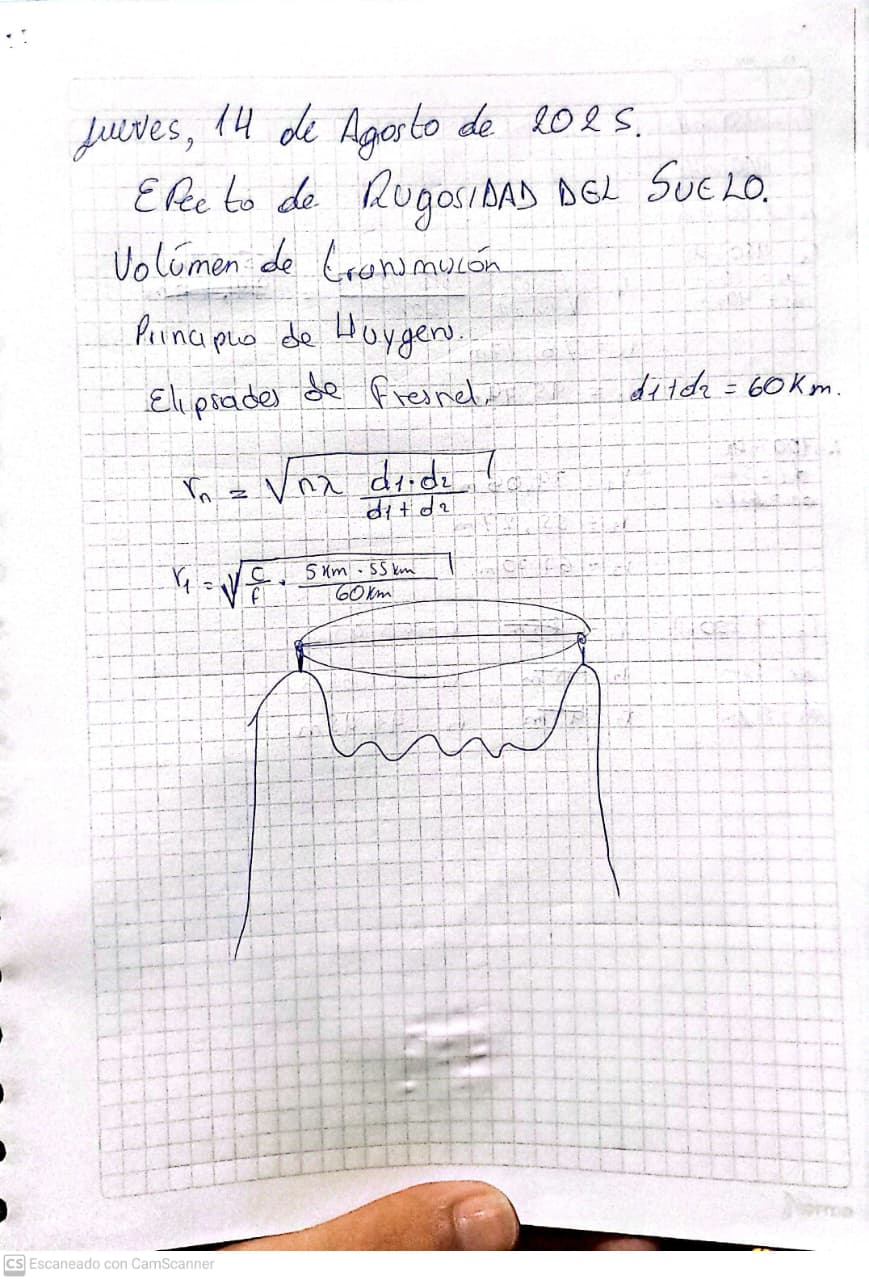 Jueves, 14 de Agosto de 2025.
Efecto de RUGOSIDAD DEL SUELO.
Volúmen de transmisión
Principio de Huygens.
Elipsoides de fresnel.
d1+d2 = 60 Km.
rn = √nλ d1·d2 / d1+d2
r1 = √c/f · 5 Km · 55 km / 60 Km
Norma
CS Escaneado con CamScanner